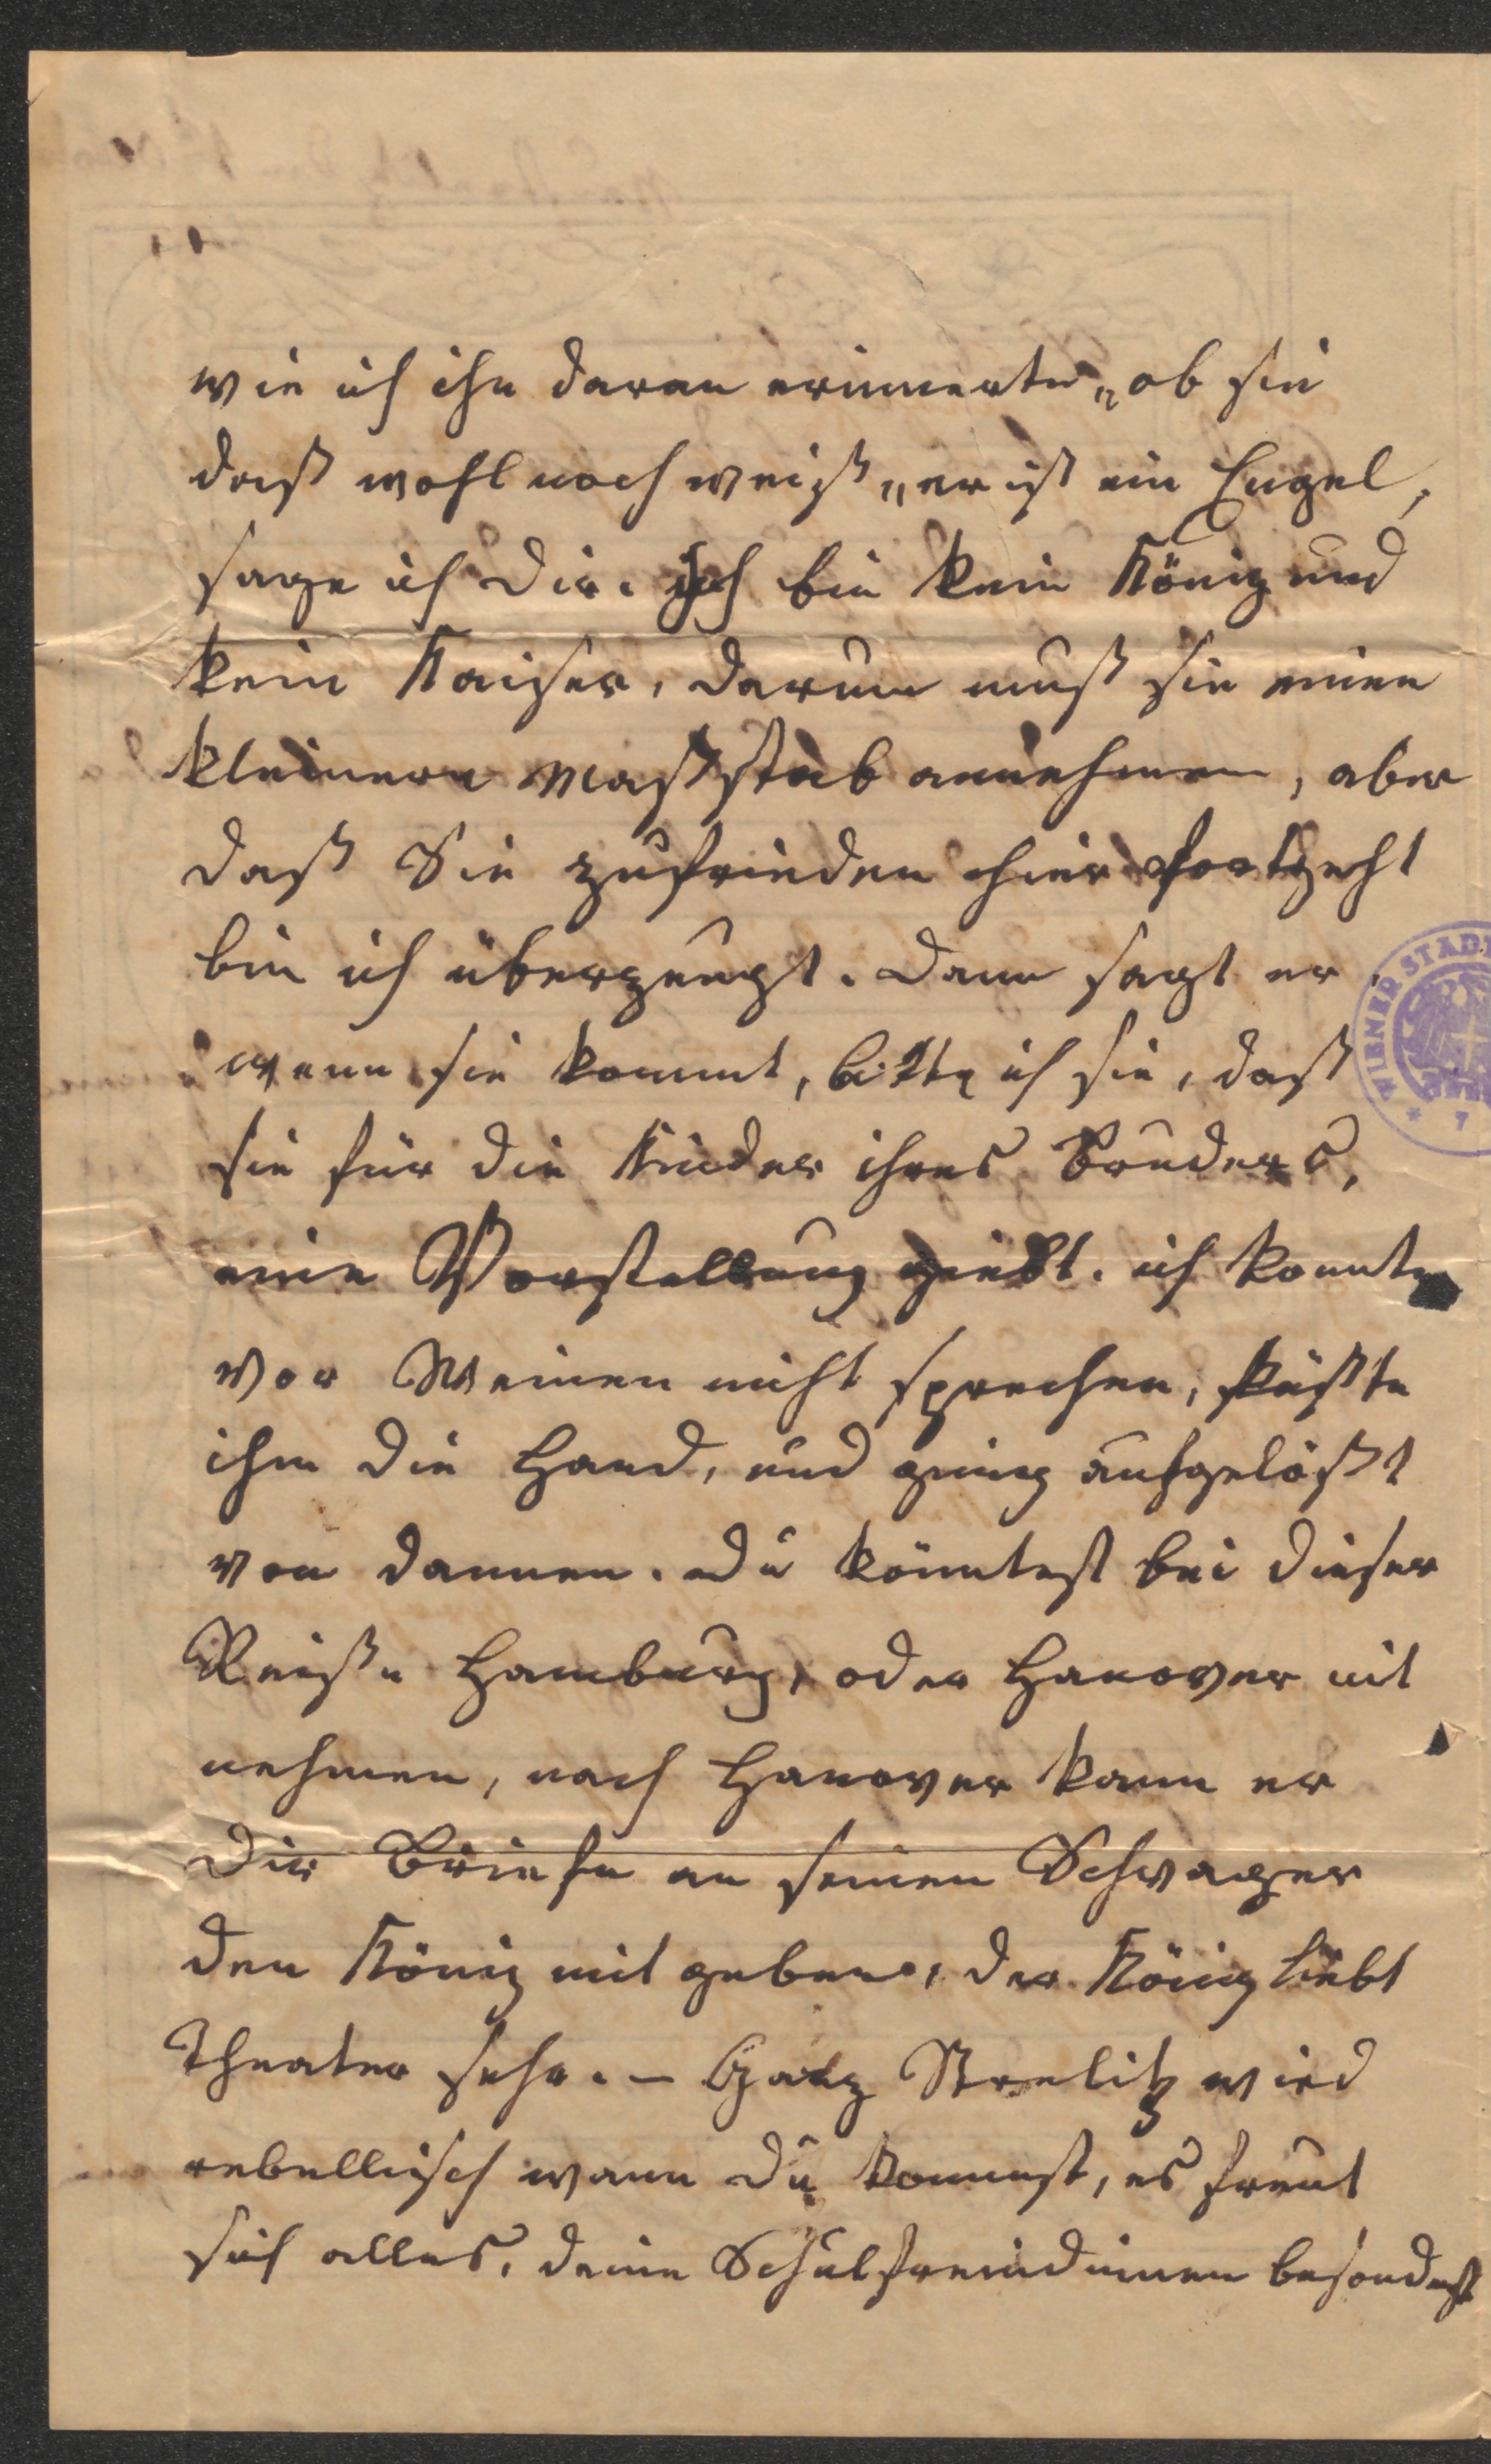 wie ich ihn daran erinnerte „ob sie
daß wohl noch weiß „er ist ein Engel,
sage ich Dir. Ich bin kein König und
kein Kaiser, darum muß sie einen
kleinern Maßstab annehmen, aber
daß Sie zufrieden hier fortgeht
bin ich überzeugt. Dann sagt er
wenn sie kommt, bitte ich sie, daß
sie für die Kinder ihres Bruders,
eine Vorstellung giebt. ich konnte
vor Weinen nicht sprechen, küßte
ihm die Hand, und ging aufgelößt
von dannen. Du könntest bei dieser
Reiße Hamburg, oder Hanover mit
nehmen, nach Hanover kann er
Dir Briefe an seinen Schwager
den König mit geben, der König liebt
Theater sehr. – Ganz Strelitz wird
rebellisch wann Du kommst, es freut
sich alles, deine Schulfreundinnen besonders
WIENER STAD
* 7